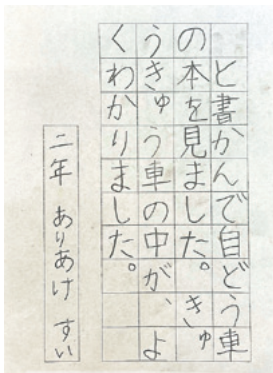 と書かんで自どう車
の本を見ました。きゅ
うきゅう車の中が、よ
くわかりました。
二年 ありあけ すい